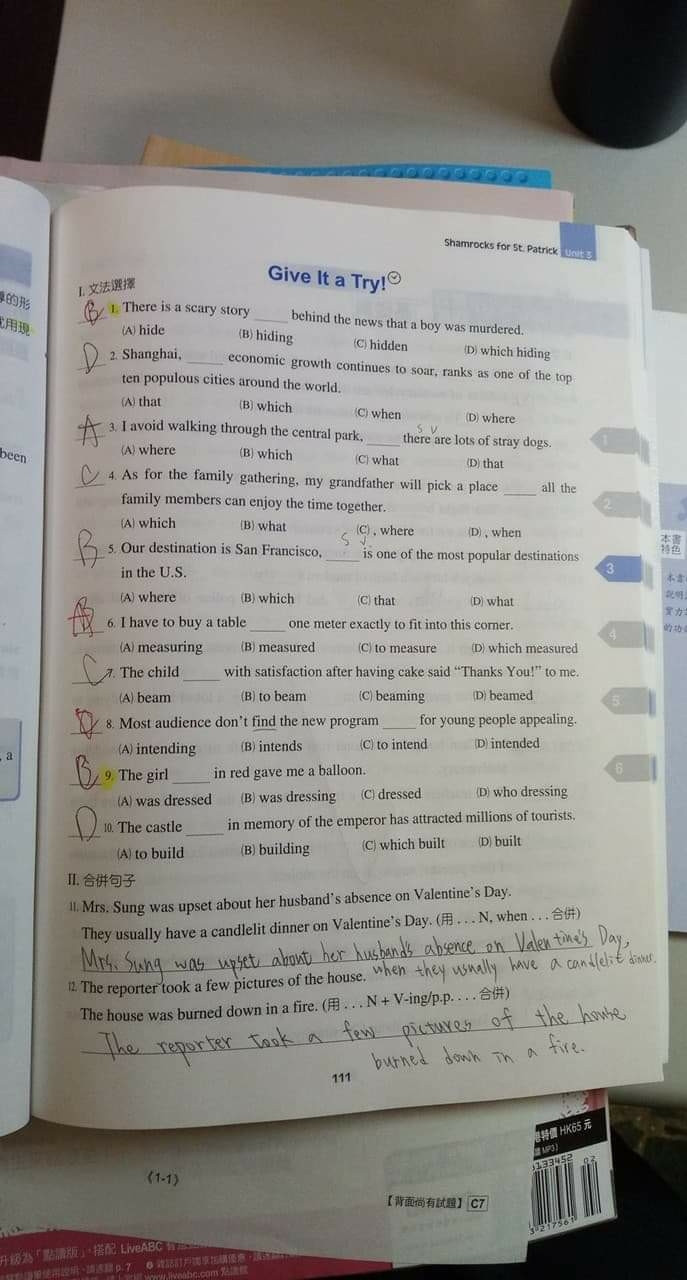 Shamrocks for St. Patrick Unit 3
Give It a Try!
I. 文法選擇
B 1. There is a scary story ____ behind the news that a boy was murdered.
(A) hide (B) hiding (C) hidden (D) which hiding
D 2. Shanghai, ____ economic growth continues to soar, ranks as one of the top
ten populous cities around the world.
(A) that (B) which (C) when (D) where
S V
A 3. I avoid walking through the central park, ____ there are lots of stray dogs.
(A) where (B) which (C) what (D) that
C 4. As for the family gathering, my grandfather will pick a place ____ all the
family members can enjoy the time together.
(A) which (B) what (C) , where (D) , when
S V
B 5. Our destination is San Francisco, ____ is one of the most popular destinations
in the U.S.
(A) where (B) which (C) that (D) what
6. I have to buy a table ____ one meter exactly to fit into this corner.
(A) measuring (B) measured (C) to measure (D) which measured
C 7. The child ____ with satisfaction after having cake said “Thanks You!” to me.
(A) beam (B) to beam (C) beaming (D) beamed
D 8. Most audience don’t find the new program ____ for young people appealing.
(A) intending (B) intends (C) to intend (D) intended
B 9. The girl ____ in red gave me a balloon.
(A) was dressed (B) was dressing (C) dressed (D) who dressing
D 10. The castle ____ in memory of the emperor has attracted millions of tourists.
(A) to build (B) building (C) which built (D) built
II. 合併句子
11. Mrs. Sung was upset about her husband’s absence on Valentine’s Day.
They usually have a candlelit dinner on Valentine’s Day. (用 . . . N, when . . . 合併)
Mrs. Sung was upset about her husband's absence on Valentine's Day,
when they usually have a candlelit dinner.
12. The reporter took a few pictures of the house.
The house was burned down in a fire. (用 . . . N + V-ing/p.p. . . . 合併)
The reporter took a few pictures of the house
burned down in a fire.
111
1
2
3
4
5
6
been
, a
本書
特色
《1-1》
【背面尚有試題】 C7
港特價 HK65 元
升級為「點讀版」，搭配 LiveABC
www.liveabc.com